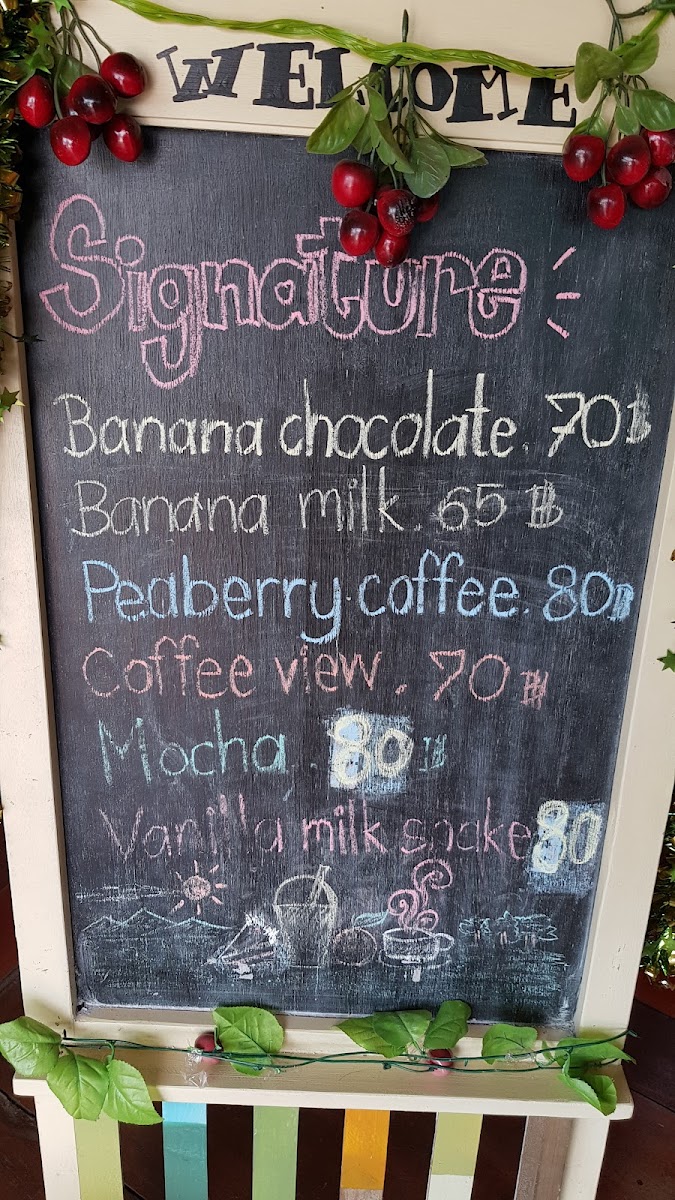 WELCOME
Signature
Banana chocolate. 70฿
Banana milk. 65฿
Peaberry coffee. 80฿
Coffee view. 70฿
Mocha. 80฿
Vanilla milk shake 80